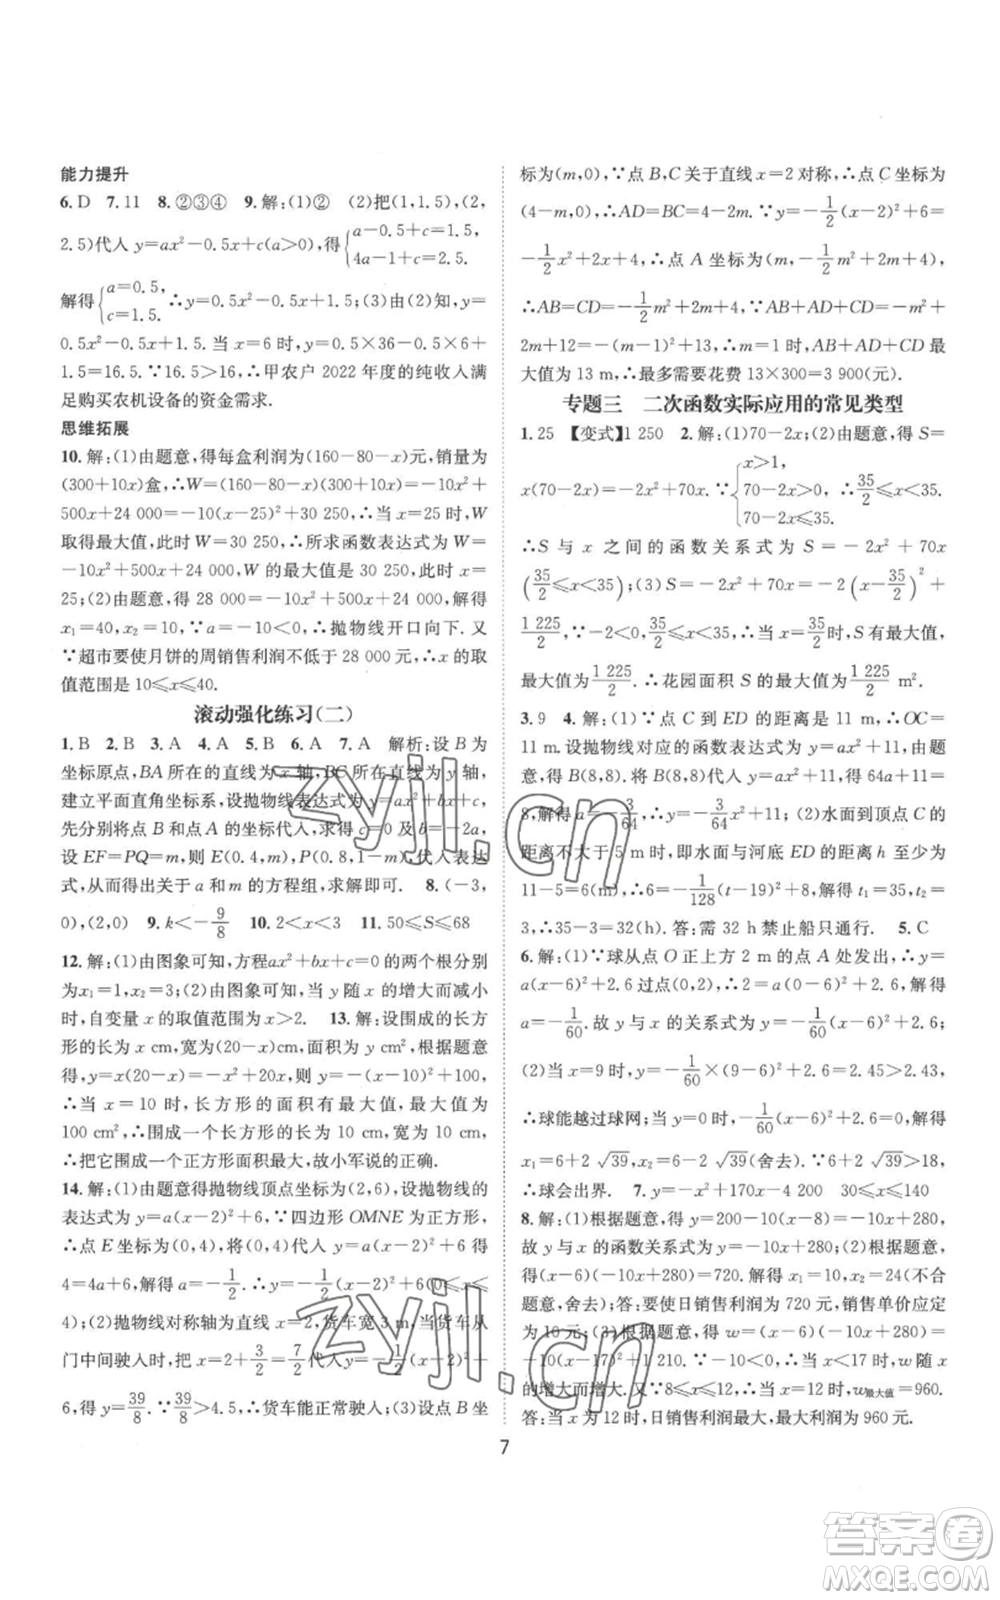 能力提升
6. D 7. 11 8. ②③④ 9. 解:(1)② (2)把(1,1.5),(2,
2.5)代人 y=ax²-0.5x+c(a>0),得{a-0.5+c=1.5, 4a-1+c=2.5.
解得{a=0.5, c=1.5. ∴y=0.5x²-0.5x+1.5;(3)由(2)知,y=
0.5x²-0.5x+1.5. 当 x=6 时,y=0.5×36-0.5×6+
1.5=16.5. ∵16.5>16,∴甲农户 2022 年度的纯收入满
足购买农机设备的资金需求.
思维拓展
10. 解:(1)由题意,得每盒利润为(160-80-x)元,销量为
(300+10x)盒,∴W=(160-80-x)(300+10x)=-10x²+
500x+24 000=-10(x-25)²+30 250,∴当 x=25 时,W
取得最大值,此时 W=30 250,∴所求函数表达式为 W=
-10x²+500x+24 000,W 的最大值是 30 250,此时 x=
25;(2)由题意,得 28 000=-10(x-25)²+30 250,解得
x₁=40,x₂=10,∵a=-10<0,∴抛物线开口向下. 又
∵超市要使月饼的周销售利润不低于 28 000 元,∴x 的取
值范围是 10≤x≤40.
滚动强化练习(二)
1. B 2. B 3. A 4. A 5. B 6. A 7. A 解析:设 B 为
坐标原点,BA 所在的直线为 x 轴,BC 所在直线为 y 轴,
建立平面直角坐标系,设抛物线表达式为 y=ax²+bx+c,
先分别将点 B 和点 A 的坐标代人,求得 c=0 及 b=-2a,
设 EF=PQ=m,则 E(0.4,m),P(0.8,1-m)代人表达式,
从而得出关于 a 和 m 的方程组,求解即可. 8. (-3,
0),(2,0) 9. k<-9/8 10. 2<x<3 11. 50≤S≤68
12. 解:(1)由图象可知,方程 ax²+bx+c=0 的两个根分别
为 x₁=1,x₂=3;(2)由图象可知,当 y 随 x 的增大而减小
时,自变量 x 的取值范围为 x>2. 13. 解:设围成的长方
形的长为 x cm,宽为(20-x)cm,面积为 y cm²,根据题意
得,y=x(20-x)=-x²+20x=-(x-10)²+100,
∴当 x=10 时,长方形的面积有最大值,最大值为
100 cm²,∴围成一个长方形的长为 10 cm,宽为 10 cm,
∴把它围成一个正方形面积最大,故小军说的正确.
14. 解:(1)由题意得抛物线顶点坐标为(2,6),设抛物线的
表达式为 y=a(x-2)²+6,∵四边形 OMNE 为正方形,
∴点 E 坐标为(0,4),将(0,4)代人 y=a(x-2)²+6 得
4=4a+6,解得 a=-1/2. ∴y=-1/2(x-2)²+6(0≤x≤
4);(2)抛物线对称轴为直线 x=2,货车宽 3 m,当货车从
门中间驶入时,把 x=2+3/2=7/2代人 y=-1/2(x-2)²+
6,得 y=39/8. ∵39/8>4.5,∴货车能正常驶人;(3)设点 B 坐
标为(m,0),∵点 B,C 关于直线 x=2 对称,∴点 C 坐标为
(4-m,0),∴AD=BC=4-2m. ∵y=-1/2(x-2)²+6=
-1/2x²+2x+4,∴点 A 坐标为(m,-1/2m²+2m+4),
∴AB=CD=-1/2m²+2m+4,∵AB+AD+CD=-m²+
2m+12=-(m-1)²+13,∴当 m=1 时,AB+AD+CD 最
大值为 13 m,∴最多需要花费 13×300=3 900(元).
专题三 二次函数实际应用的常见类型
1. 25 【变式】1 250 2. 解:(1)70-2x;(2)由题意,得 S=
x(70-2x)=-2x²+70x. ∵{x>1, 70-2x>0, 70-2x≤35. ∴35/2≤x<35.
∴S 与 x 之间的函数关系式为 S=-2x²+70x
(35/2≤x<35);(3)S=-2x²+70x=-2(x-35/2)²+
1 225/2,∵-2<0,35/2≤x<35,∴当 x=35/2时,S 有最大值,
最大值为1 225/2. ∴花园面积 S 的最大值为1 225/2 m².
3. 9 4. 解:(1)∵点 C 到 ED 的距离是 11 m,∴OC=
11 m. 设抛物线对应的函数表达式为 y=ax²+11,由题
意,得 B(8,8). 把 B(8,8)代人 y=ax²+11,得 64a+11=
8,解得 a=-3/64,∴y=-3/64x²+11;(2)水面到顶点 C 的
距离不大于 5 m 时,即水面与河底 ED 的距离 h 至少为
11-5=6(m),∴6=-1/128(t-19)²+8,解得 t₁=35,t₂=
3,∴35-3=32(h). 答:需 32 h 禁止船只通行. 5. C
6. 解:(1)∵球从点 O 正上方 2 m 的点 A 处发出,∴y=
a(x-6)²+2.6 过点(0,2),∴2=a(0-6)²+2.6,解得
a=-1/60. 故 y 与 x 的关系式为 y=-1/60(x-6)²+2.6;
(2)当 x=9 时,y=-1/60×(9-6)²+2.6=2.45>2.43,
∴球能越过球网;当 y=0 时,-1/60(x-6)²+2.6=0,解得
x₁=6+2√39,x₂=6-2√39(舍去). ∵6+2√39>18,
∴球会出界. 7. y=-x²+170x-4 200 30≤x≤140
8. 解:(1)根据题意,得 y=200-10(x-8)=-10x+280,
故 y 与 x 的函数关系式为 y=-10x+280;(2)根据题意,
得(x-6)(-10x+280)=720. 解得 x₁=10,x₂=24(不合
题意,舍去);答:要使日销售利润为 720 元,销售单价应定
为 10 元;(3)根据题意,得 w=(x-6)(-10x+280)=
-10(x-17)²+1 210,∵-10<0,∴当 x<17 时,w 随 x
的增大而增大. ∵8≤x≤12,∴当 x=12 时,w最大值=960.
答:当 x 为 12 时,日销售利润最大,最大利润为 960 元.
7
zyjl.cn
zyjl.cn
答案圈
MXQE.COM